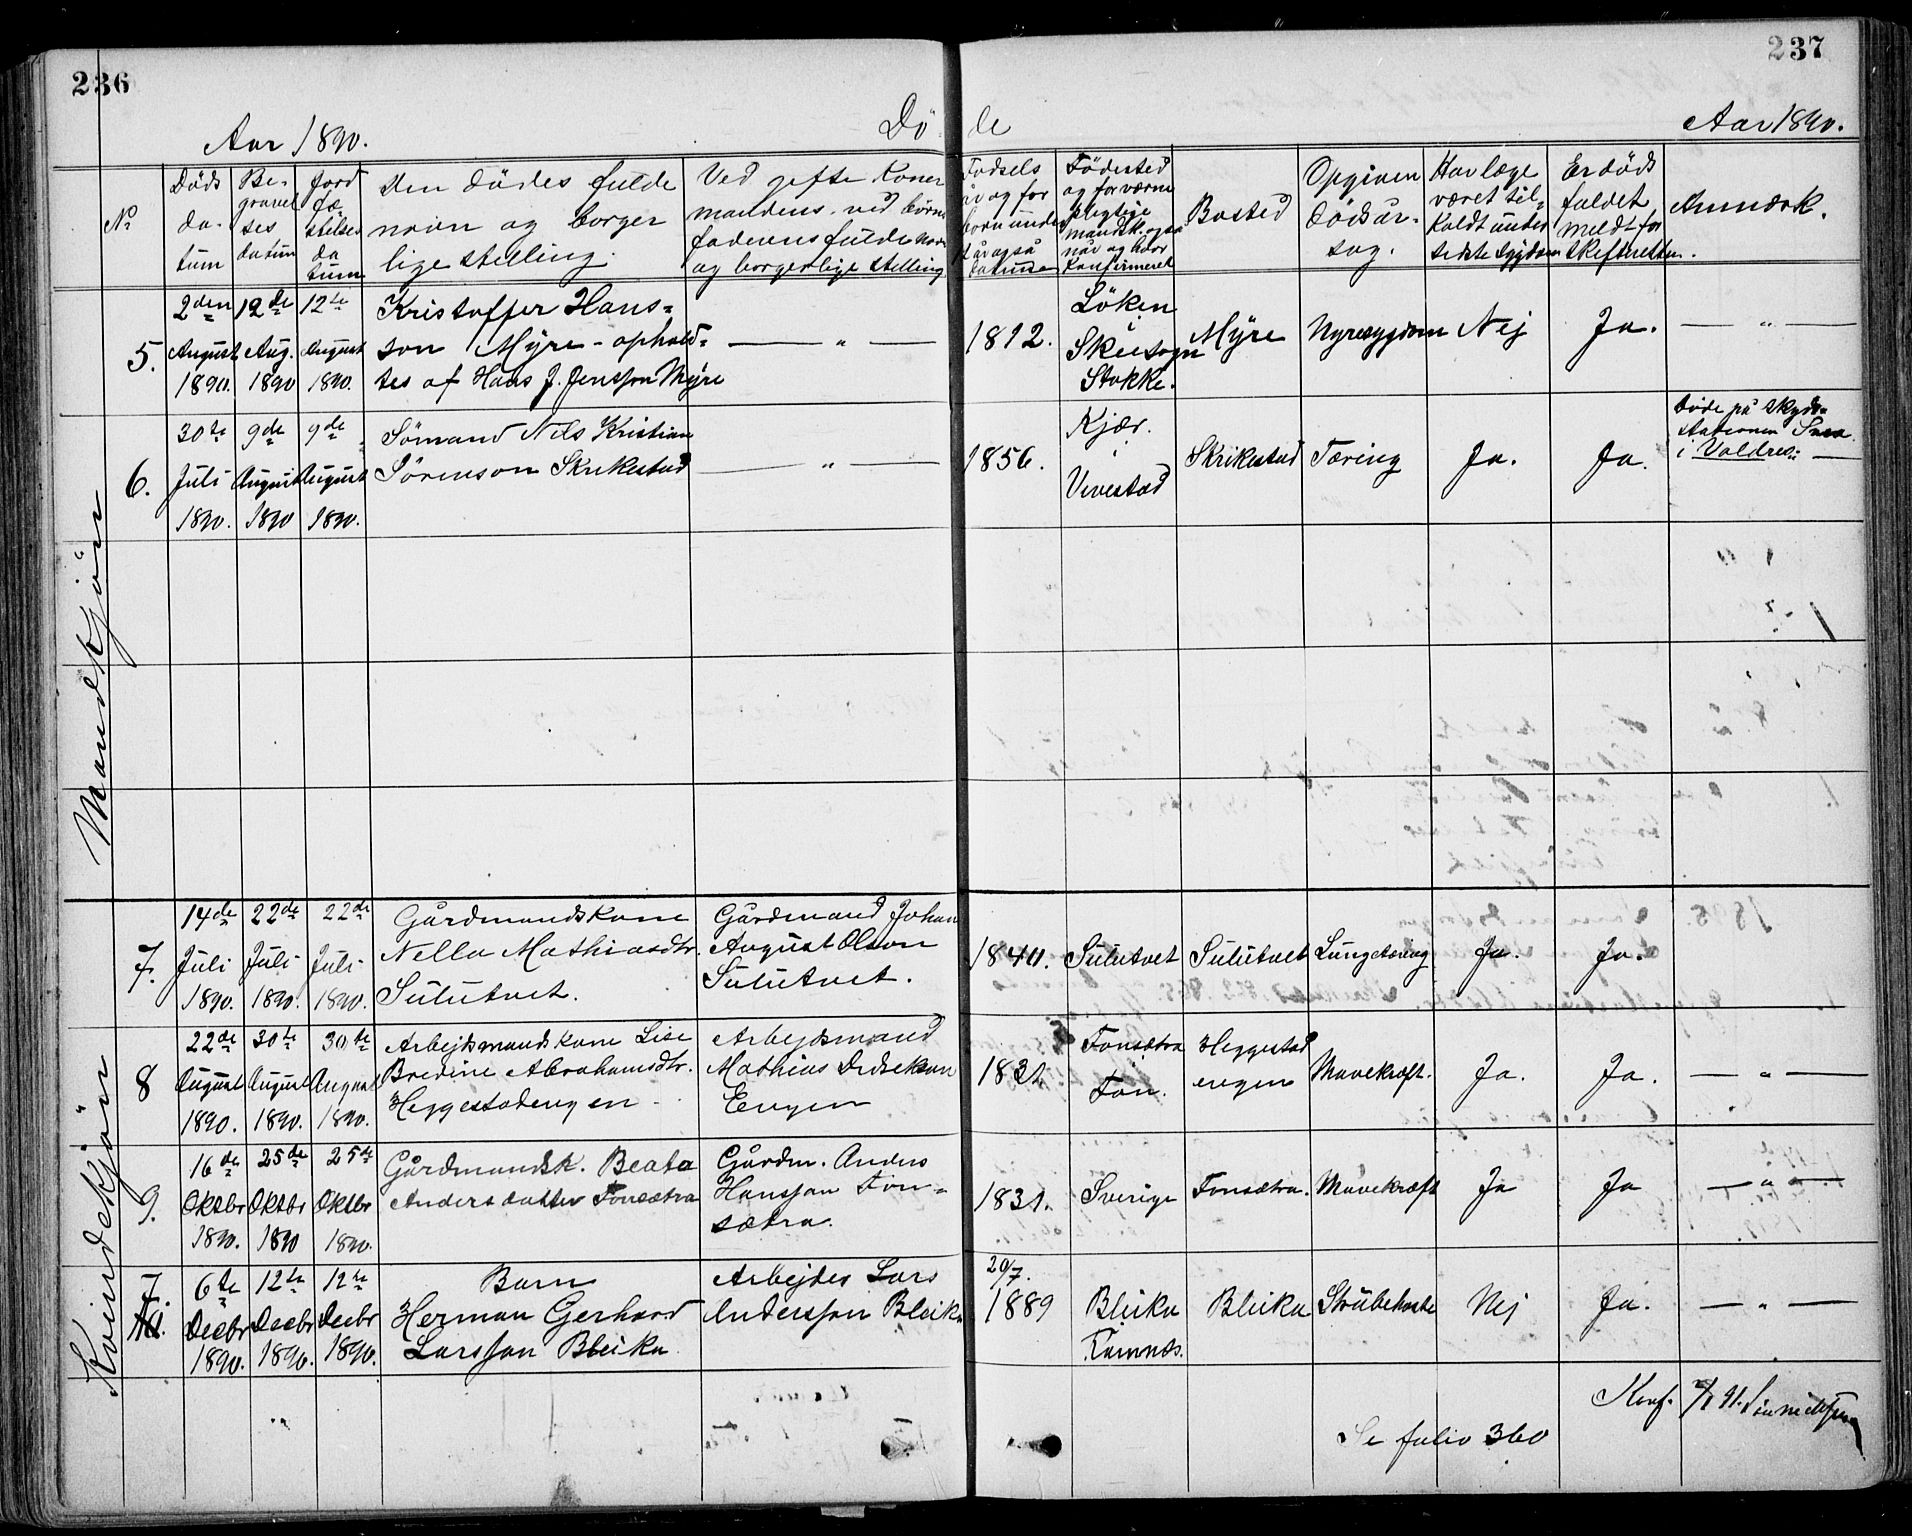 236
237
Aar 1890.
Dö de
Aar 1890.
No
Döds datum
Begravelsesdatum
Jordfæstelses datum
Den dödes fulde navn og borgerlige stilling.
Ved gifte Koner mandens, ved börn faderens fulde navn og borgerlige stilling
Födsels år og for börn under år også datum
Födested og for værnepligtige mandsk. også når og hvor konfirmeret
Bosted
Opgiven dödsårsag.
Har læge været tilkaldt under sidste sygdom
Er dödsfaldet meldt for skifteretten.
Anmærk.
Mandkjön
5. 2den August 1890. 12te Aug. 1890 12te August 1890.
Kristoffer Hans=
son Myre - ophold=
tes af Hans J. Jensson Myre
— " —
1812. Löken Skeesogn Stokke. Myre Nyresygdom Nej Ja. — " —
6. 30te Juli 1890. 9de August 1890 9de August 1890.
Sömand Nils Kristian
Sörenson Skrikestad
— " —
1856. Kjær. Vivestad Skrikestad Tæring Ja. Ja.
Döde på skyds-
stationen
i Valdres: —
Kvindekjön
7. 14de Juli 1890. 22de Juli 1890. 22de Juli 1890.
Gårdmandskone
Nella Mathiasdtr.
Sulutvet.
Gårdmand Johan
August Olson
Sulutvet.
1840. Sulutvet Sulutvet Lungetæring Ja. Ja.
8 22de August 1890. 30te August 1890. 30te August 1890.
Arbejdsmandskone Lise
Bredine Abrahamsdtr.
Heggestadengen -
Arbejdsmand
Mathias Didrikson
Engen
1832 Fonsætra Fon. Heggestadengen Mavekræft. Ja. Ja. — " —
9. 16de Oktbr 1890. 25de Oktbr 1890 25de Oktbr 1890.
Gårdmandsk. Beata
Andersdatter Fonsætra
Gårdm. Anders
Hansson Fon=
sætra.
1831. Sverige Fonsætra. Mavekræft Ja Ja — " —
7. 6te Decbr 1890. 12te Decbr 1890. 12te Decbr 1890.
Barn
Herman Gerhard
Larsson Bleika
Arbejder Lars
Andersson Bleika
20/7. 1889 Bleika Ramnæs. Bleika Strubehoste Nej Ja. — " —
Konf.
Se folio 360